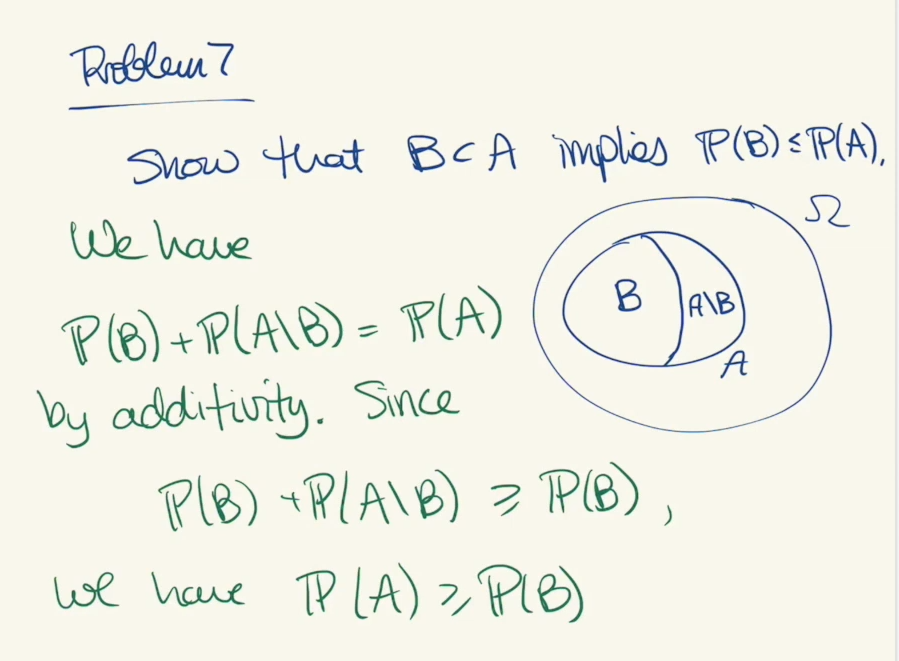 Problem 7
Show that B ⊂ A implies ℙ(B) ≤ ℙ(A).
We have
Ω
B
A\B
A
ℙ(B) + ℙ(A\B) = ℙ(A)
by additivity. Since
ℙ(B) + ℙ(A\B) ⩾ ℙ(B),
we have ℙ(A) ⩾ ℙ(B)